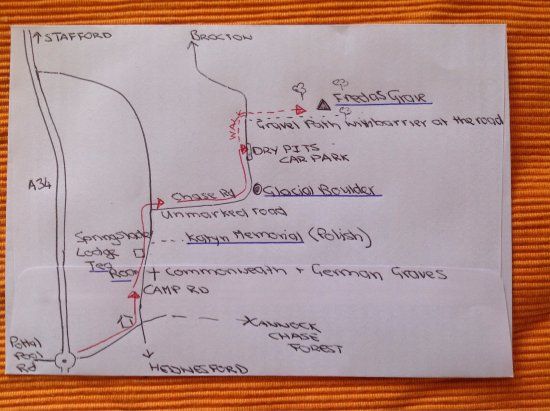 ↑STAFFORD
BROCTON
Freda's Grave
Gravel Path with barrier at the road
WALK
DRY PITS
CAR PARK
A34
Chase Rd
Glacial Boulder
Unmarked road
Springslade
Lodge
Tea
Room
Katyn Memorial (Polish)
+ Commonwealth + German Graves
CAMP RD
CANNOCK
CHASE
FOREST
Pottal
Pool
Rd
HEDNESFORD